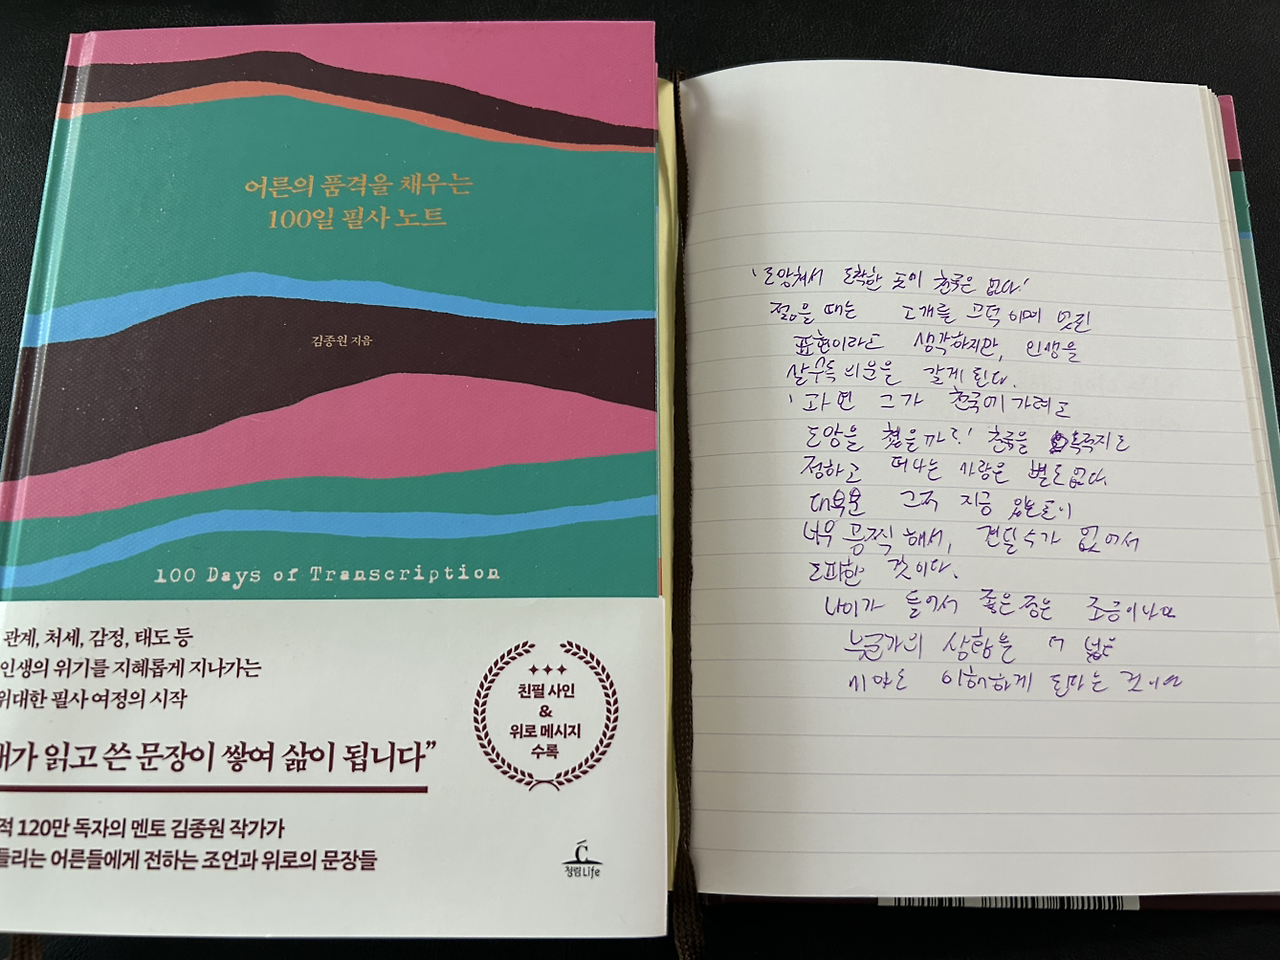 어른의 품격을 채우는
100일 필사 노트
김종원 지음
100 Days of Transcription
관계, 처세, 감정, 태도 등
인생의 위기를 지혜롭게 지나가는
위대한 필사 여정의 시작
내가 읽고 쓴 문장이 쌓여 삶이 됩니다”
적 120만 독자의 멘토 김종원 작가가
들리는 어른들에게 전하는 조언과 위로의 문장들
친필 사인
&
위로 메시지
수록
청림Life
'도망쳐서 도착한 곳이 천국은 없다.'
젊을 때는 고개를 끄덕이며 멋진
표현이라고 생각하지만, 인생을
살수록 의문을 갖게 된다.
'과연 그가 천국에 가려고
도망을 쳤을까?' 천국을 목적지로
정하고 떠나는 사람은 별로 없다.
대부분 그저 지금 있는 곳이
너무 끔찍해서, 견딜 수가 없어서
도피한 것이다.
나이가 들어서 좋은 점은 조금이나마
누군가의 상황을 더 넓은
시야로 이해하게 된다는 것이다